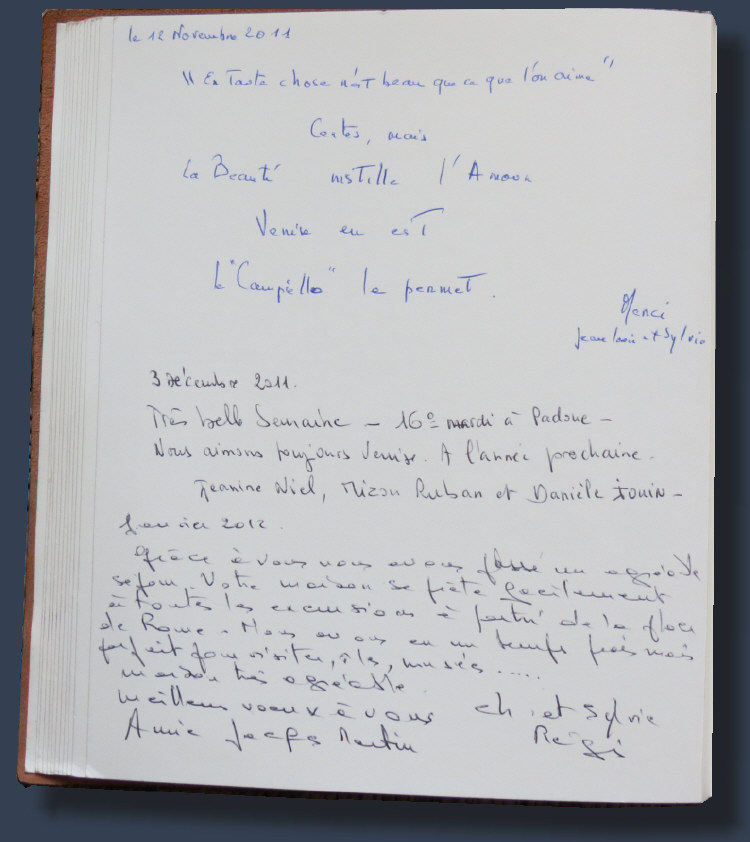 le 12 Novembre 2011
"En Toute chose n'est beau que ce que l'on aime"
Certes, mais
la Beauté instille l'Amour
Venise en est
le "Campiello" le permet.
Merci
Jean Louis et Sylvie
3 décembre 2011.
Très belle Semaine - 16° mardi à Padoue -
Nous aimons toujours Venise. A l'année prochaine.
Jeanine Niel, Mizou Ruban et Danièle Jouin -
Janvier 2012.
Grâce à vous nous avons passé un agréable
séjour. Votre maison se prête facilement
à toutes les excursions à partir de la place
de Rome. Nous avons eu un temps frais mais
parfait pour visiter, îles, musées .....
maison très agréable.
meilleurs voeux à vous Ch. et Sylvie
Annie Martin Régi